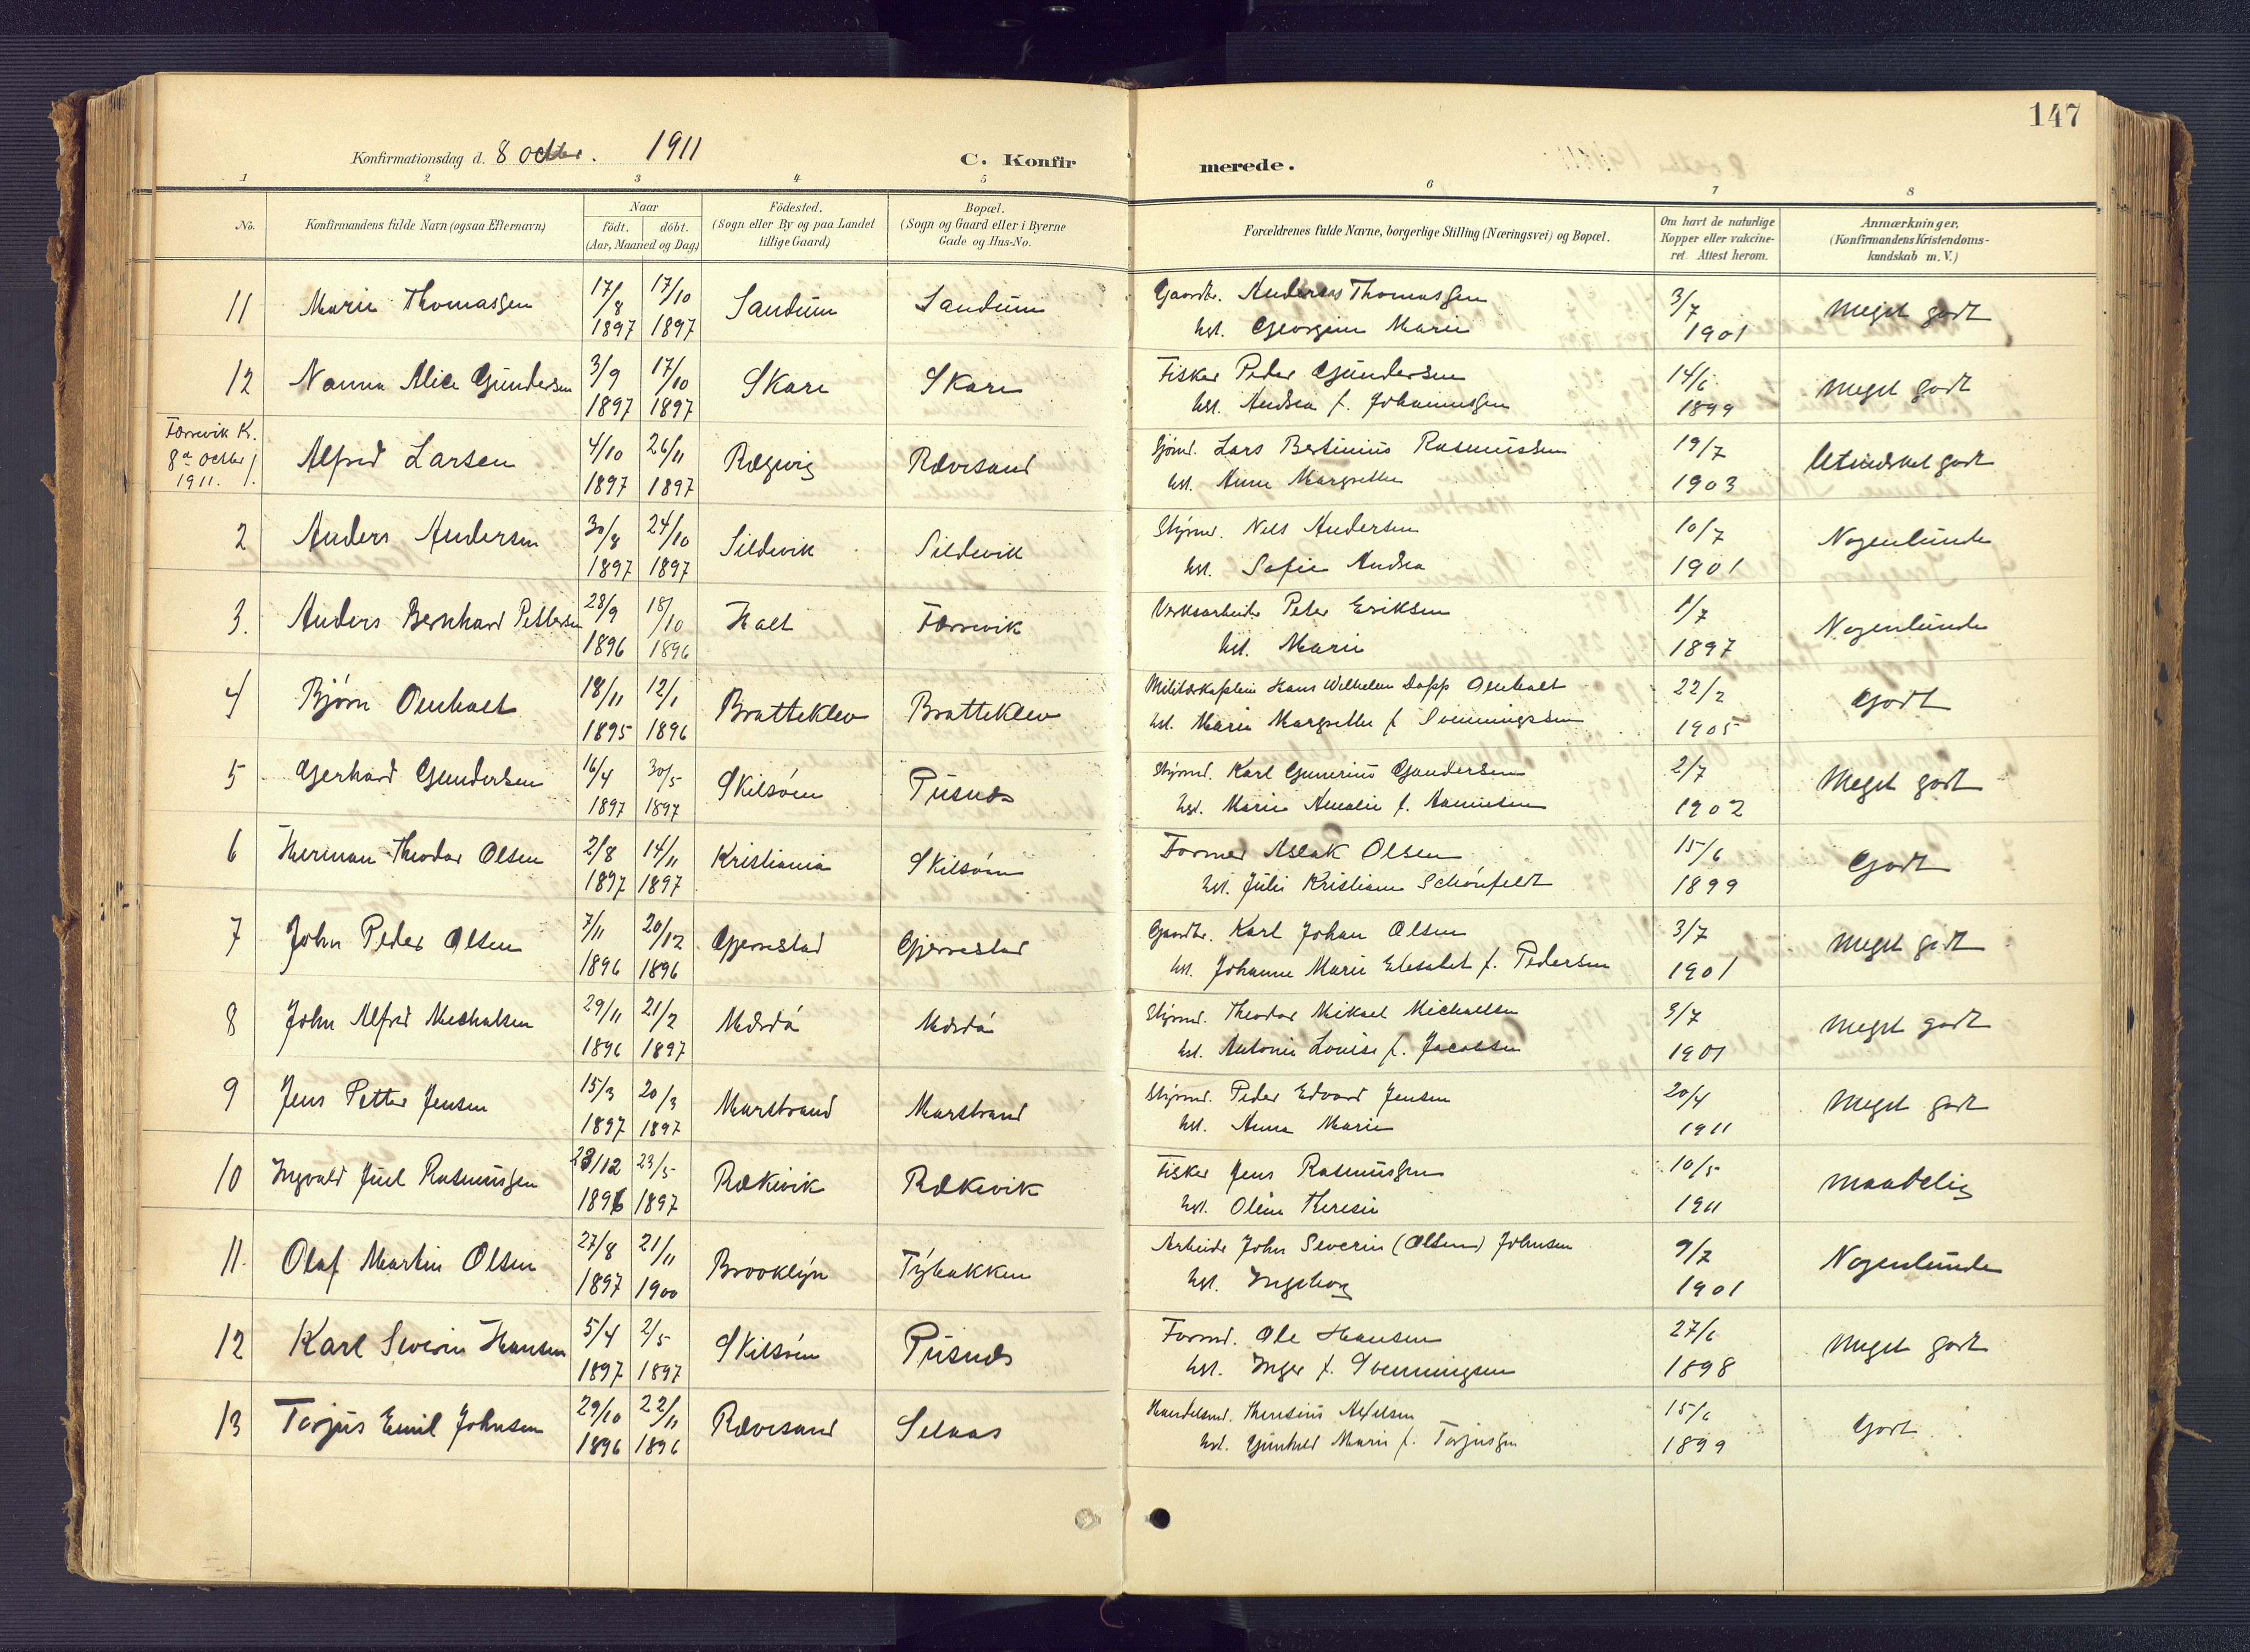 147
Konfirmationsdag d. 8 octbr. 1911
C. Konfirmerede.
1 2 3 4 5 6 7 8
No.
Konfirmandens fulde Navn (ogsaa Efternavn)
Naar
födt. döbt.
(Aar, Maaned og Dag)
Födested.
(Sogn eller By og paa Landet
tillige Gaard)
Bopæl.
(Sogn og Gaard eller i Byerne
Gade og Hus-No.
Forældrenes fulde Navne, borgerlige Stilling (Næringsvei) og Bopæl.
Om havt de naturlige
Kopper eller vakcine-
ret. Attest herom.
Anmærkninger.
(Konfirmandens Kristendoms-
kundskab m.V.)
11 Marie Thomassen 17/8 1897 17/10 1897 Sandum Sandum
Gaardbr. Andreas Thomassen
hst. Georgine Marie
3/7 1901 Meget godt
12 Nanna Alice Gundersen 3/9 1897 17/10 1897 Skare Skare
Fisker Peder Gundersen
hst. Andrea f. Johannessen
14/6 1899 Meget godt
Færvik K.
8de octbr
1911. 1.
Alfred Larsen 4/10 1897 26/11 1897 Rægevig Rævesand
Sjømd. Lars Bertinius Rasmussen
hst. Anne Margrethe
19/7 1903 Udmerket godt
2 Anders Andersen 30/8 1897 24/10 1897 Sildevik Sildevik
Styrmd. Nils Andersen
hst. Sofie Andrea
10/7 1901 Nogenlunde
3. Anders Bernhard Pettersen 28/9 1896 18/10 1896 Holt Færvik
Verksarbeider Peter Eriksen
hst. Marie
1/7 1897 Nogenlunde
4 Bjørn Omholt 18/11 1895 12/1 1896 Bratteklev Bratteklev
Militærkaptein Hans Wilhelm Dopp Omholt
hst. Marie Margrethe f. Svenningsen
22/2 1905 Godt
5 Gerhard Gundersen 16/4 1897 30/5 1897 Skilsøen Pusnes
Styrmd. Karl Gunerius Gundersen
hst. Marie Amalie f.
2/7 1902 Meget godt
6 Herman Theodor Olsen 2/8 1897 14/11 1897 Kristiania Skilsøen
Former Aslak Olsen
hst. Julie Kristiane Schönfeldt
15/6 1899 Godt
7 John Peder Olsen 7/11 1896 20/12 1896 Gjerrestad Gjerrestad
Gaardbr. Karl Johan Olsen
hst. Johanne Marie Elesabet f. Pedersen
3/7 1901 Meget godt
8 John Alfred Michalsen 29/11 1896 21/2 1897 Merdø Merdø
Styrmd. Theodor Mikael Michaelsen
hst. Antonie Louise f. Jacobsen
3/7 1901 Meget godt
9 Jens Petter Jensen 15/3 1897 20/3 1897 Marstrand Marstrand
Styrmd. Peder Edvard Jensen
hst. Anna Marie
20/4 1911 Meget godt
10 Ingvald Juel Rasmussen 28/12 1896 23/5 1897 Rækevik Rækevik
Fisker Jens Rasmussen
hst. Oline Theresie
10/5 1911 Maadelig
11. Olaf Martin Olsen 27/8 1897 21/11 1900 Brooklyn Tybakken
Arbeider John Severin (Olsen) Johnsen
hst. Ingeborg
9/7 1901 Nogenlunde
12 Karl Severin Hansen 5/4 1897 2/5 1897 Skilsøen Pusnes
Formd. Ole Hansen
hst. Inger f. Svenningsen
27/6 1898 Meget godt
13 Torjus Emil Johnsen 29/10 1896 22/11 1896 Rævesand Selaas
Handelsmd. Axelsen
hst. Gunhild Marie f. Torjussen
15/6 1899 Godt